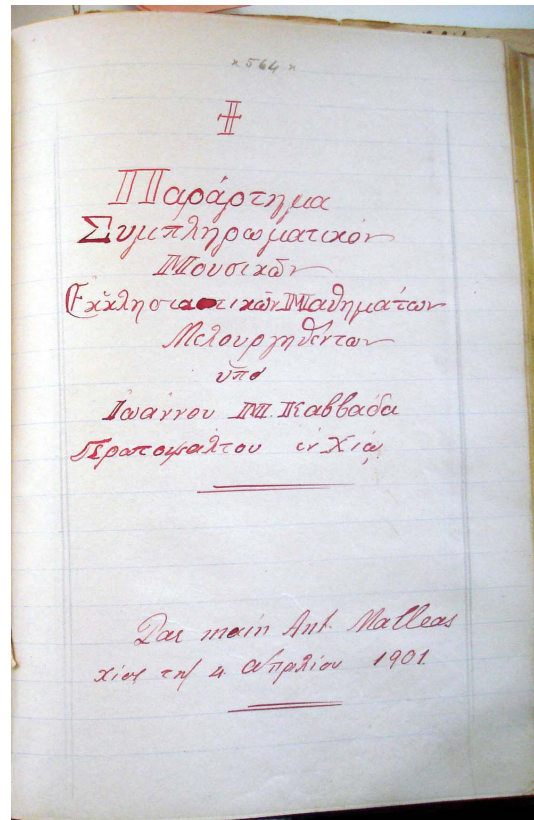 × 564 ×
Παράρτημα
Συμπληρωματικόν
Μουσικῶν
Ἐκκλησιαστικῶν Μαθημάτων
Μελουργηθέντων
ὑπό
Ἰωάννου Μ. Καββάδα
Ἱεροψάλτου ἐν Χίῳ
Par main Ant. Malleas
Χίος τῇ 4 Ἀπριλίου 1901